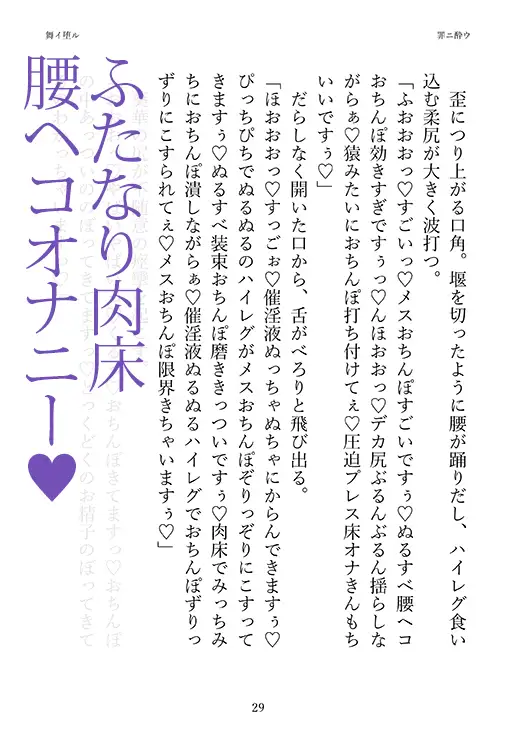 罪ニ酔ウ
舞イ堕ル
歪につり上がる口角。堰を切ったように腰が踊りだし、ハイレグ食い
込む柔尻が大きく波打つ。
「ふおおおっ♡すごいっ♡メスおちんぽすごいですぅ♡ぬるすべ腰ヘコ
おちんぽ効きすぎですぅっ♡んほおおっ♡デカ尻ぶるんぶるん揺らしな
がらぁ♡猿みたいにおちんぽ打ち付けてぇ♡圧迫プレス床オナきんもち
いいですぅ♡」
だらしなく開いた口から、舌がべろりと飛び出る。
「ほおおおっ♡すっごぉ♡催淫液ぬっちゃぬちゃにからんできますぅ♡
ぴっちぴちでぬるぬるのハイレグがメスおちんぽぞりっぞりにこすって
きますぅ♡ぬるすべ装束おちんぽ磨ききっついですぅ♡肉床でみっちみ
ちにおちんぽ潰しながらぁ♡催淫液ぬるぬるハイレグでおちんぽずりっ
ずりにこすられてぇ♡メスおちんぽ限界きちゃいますぅ♡」
ふたなり肉床
腰ヘコオナニー♥
29